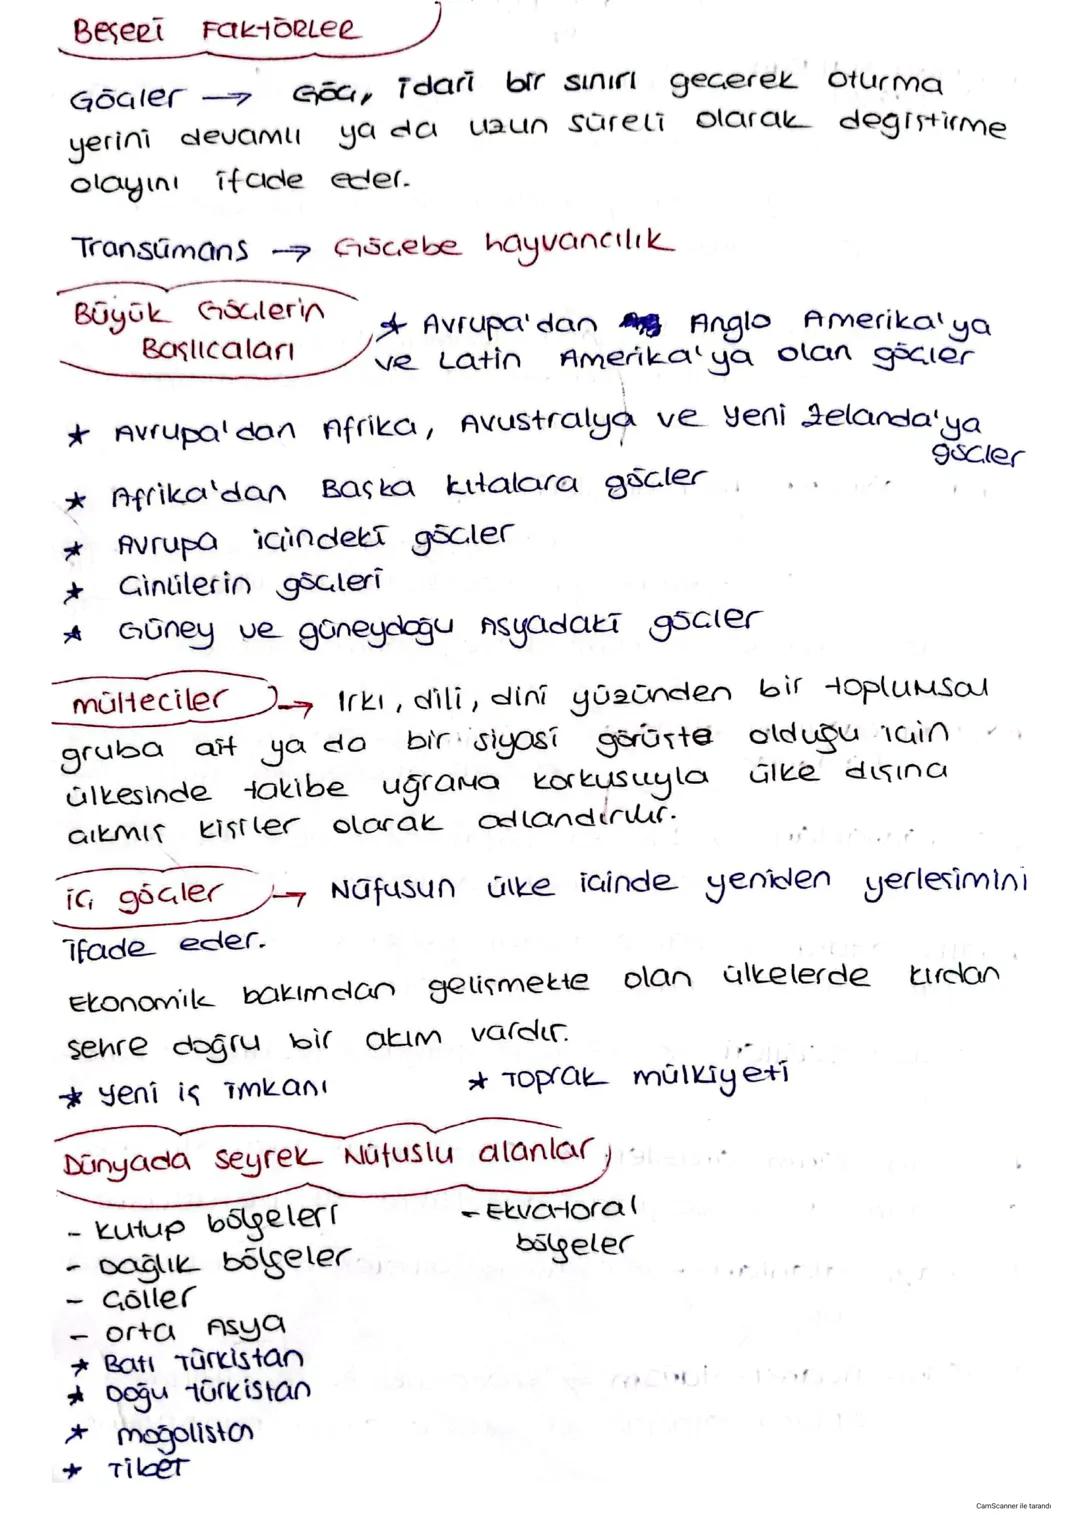 Beşeri Faktörler
Göçler → Göç, idari bir sınırı geçerek oturma
yerini devamlı ya da uzun süreli olarak degiştirme
olayını ifade eder.
Transümans → Göçebe hayvancılık
Büyük Göçlerin
Başlıcaları
* Avrupa'dan Anglo Amerika'ya
ve Latin Amerika'ya olan göçler
* Avrupa'dan Afrika, Avustralya ve Yeni Zelanda'ya
göçler
* Afrika'dan Başka kıtalara göçler
* Avrupa içindeki göçler
* Çinlilerin göçleri
* Güney ve güneydoğu Asyadaki göçler
mülteciler → Irkı, dili, dini yüzünden bir toplumsal
gruba ait ya da bir siyasi görüşte olduğu için
ülkesinde takibe uğrama korkusuyla ülke dışına
çıkmış kişiler olarak adlandırılır.
iç göçler → Nüfusun ülke içinde yeniden yerleşimini
ifade eder.
Ekonomik bakımdan gelişmekte olan ülkelerde kırdan
şehre doğru bir akım vardır.
* Yeni iş imkanı * Toprak mülkiyeti
Dünyada Seyrek Nüfuslu alanlar
- Kutup bölgeleri
- Ekvatoral
bölgeler
- Dağlık bölgeler
- Göller
- orta Asya
* Batı Türkistan
* Doğu türkistan
* moğolistan
* Tibet
CamScanner ile tarandı